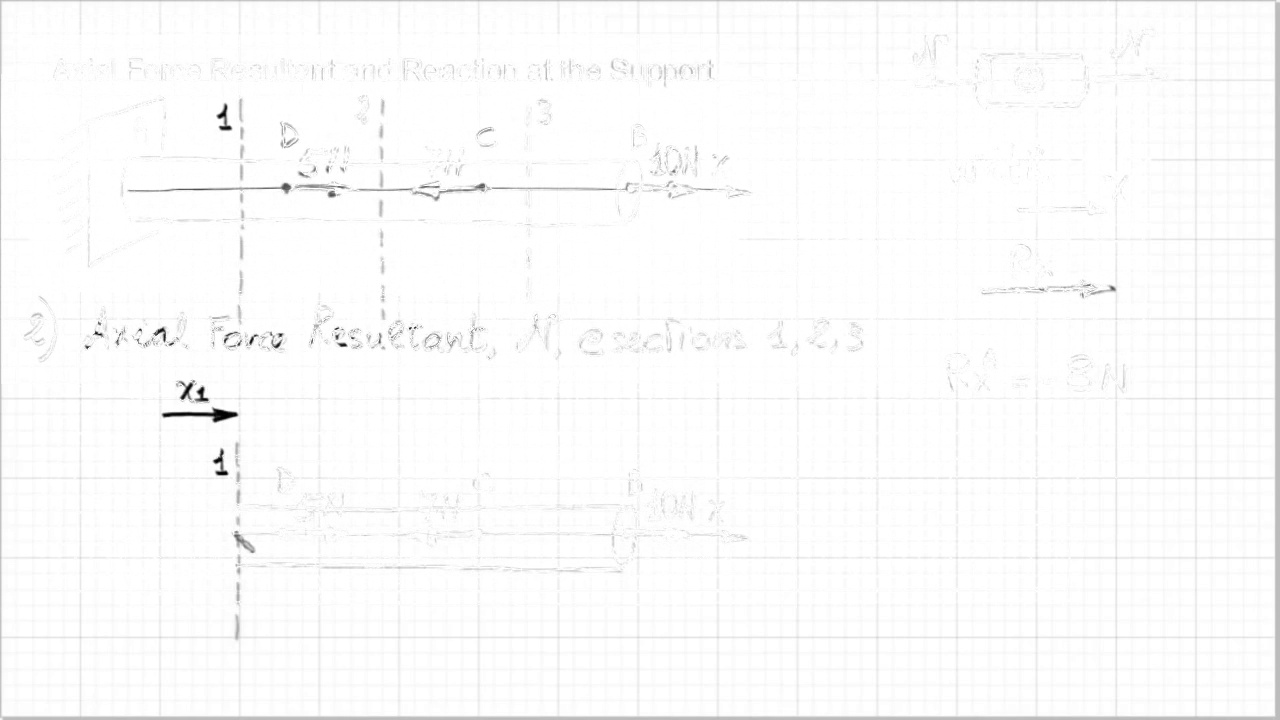 Axial Force Resultant and Reaction at the Support
N N
1 2 3
A D C B
5N 7N 10N x
x
Rx
2) Axial Force Resultant, N, @ sections 1, 2, 3
Rxᴬ = -8N
x1
1
D C B
5N 7N 10N x